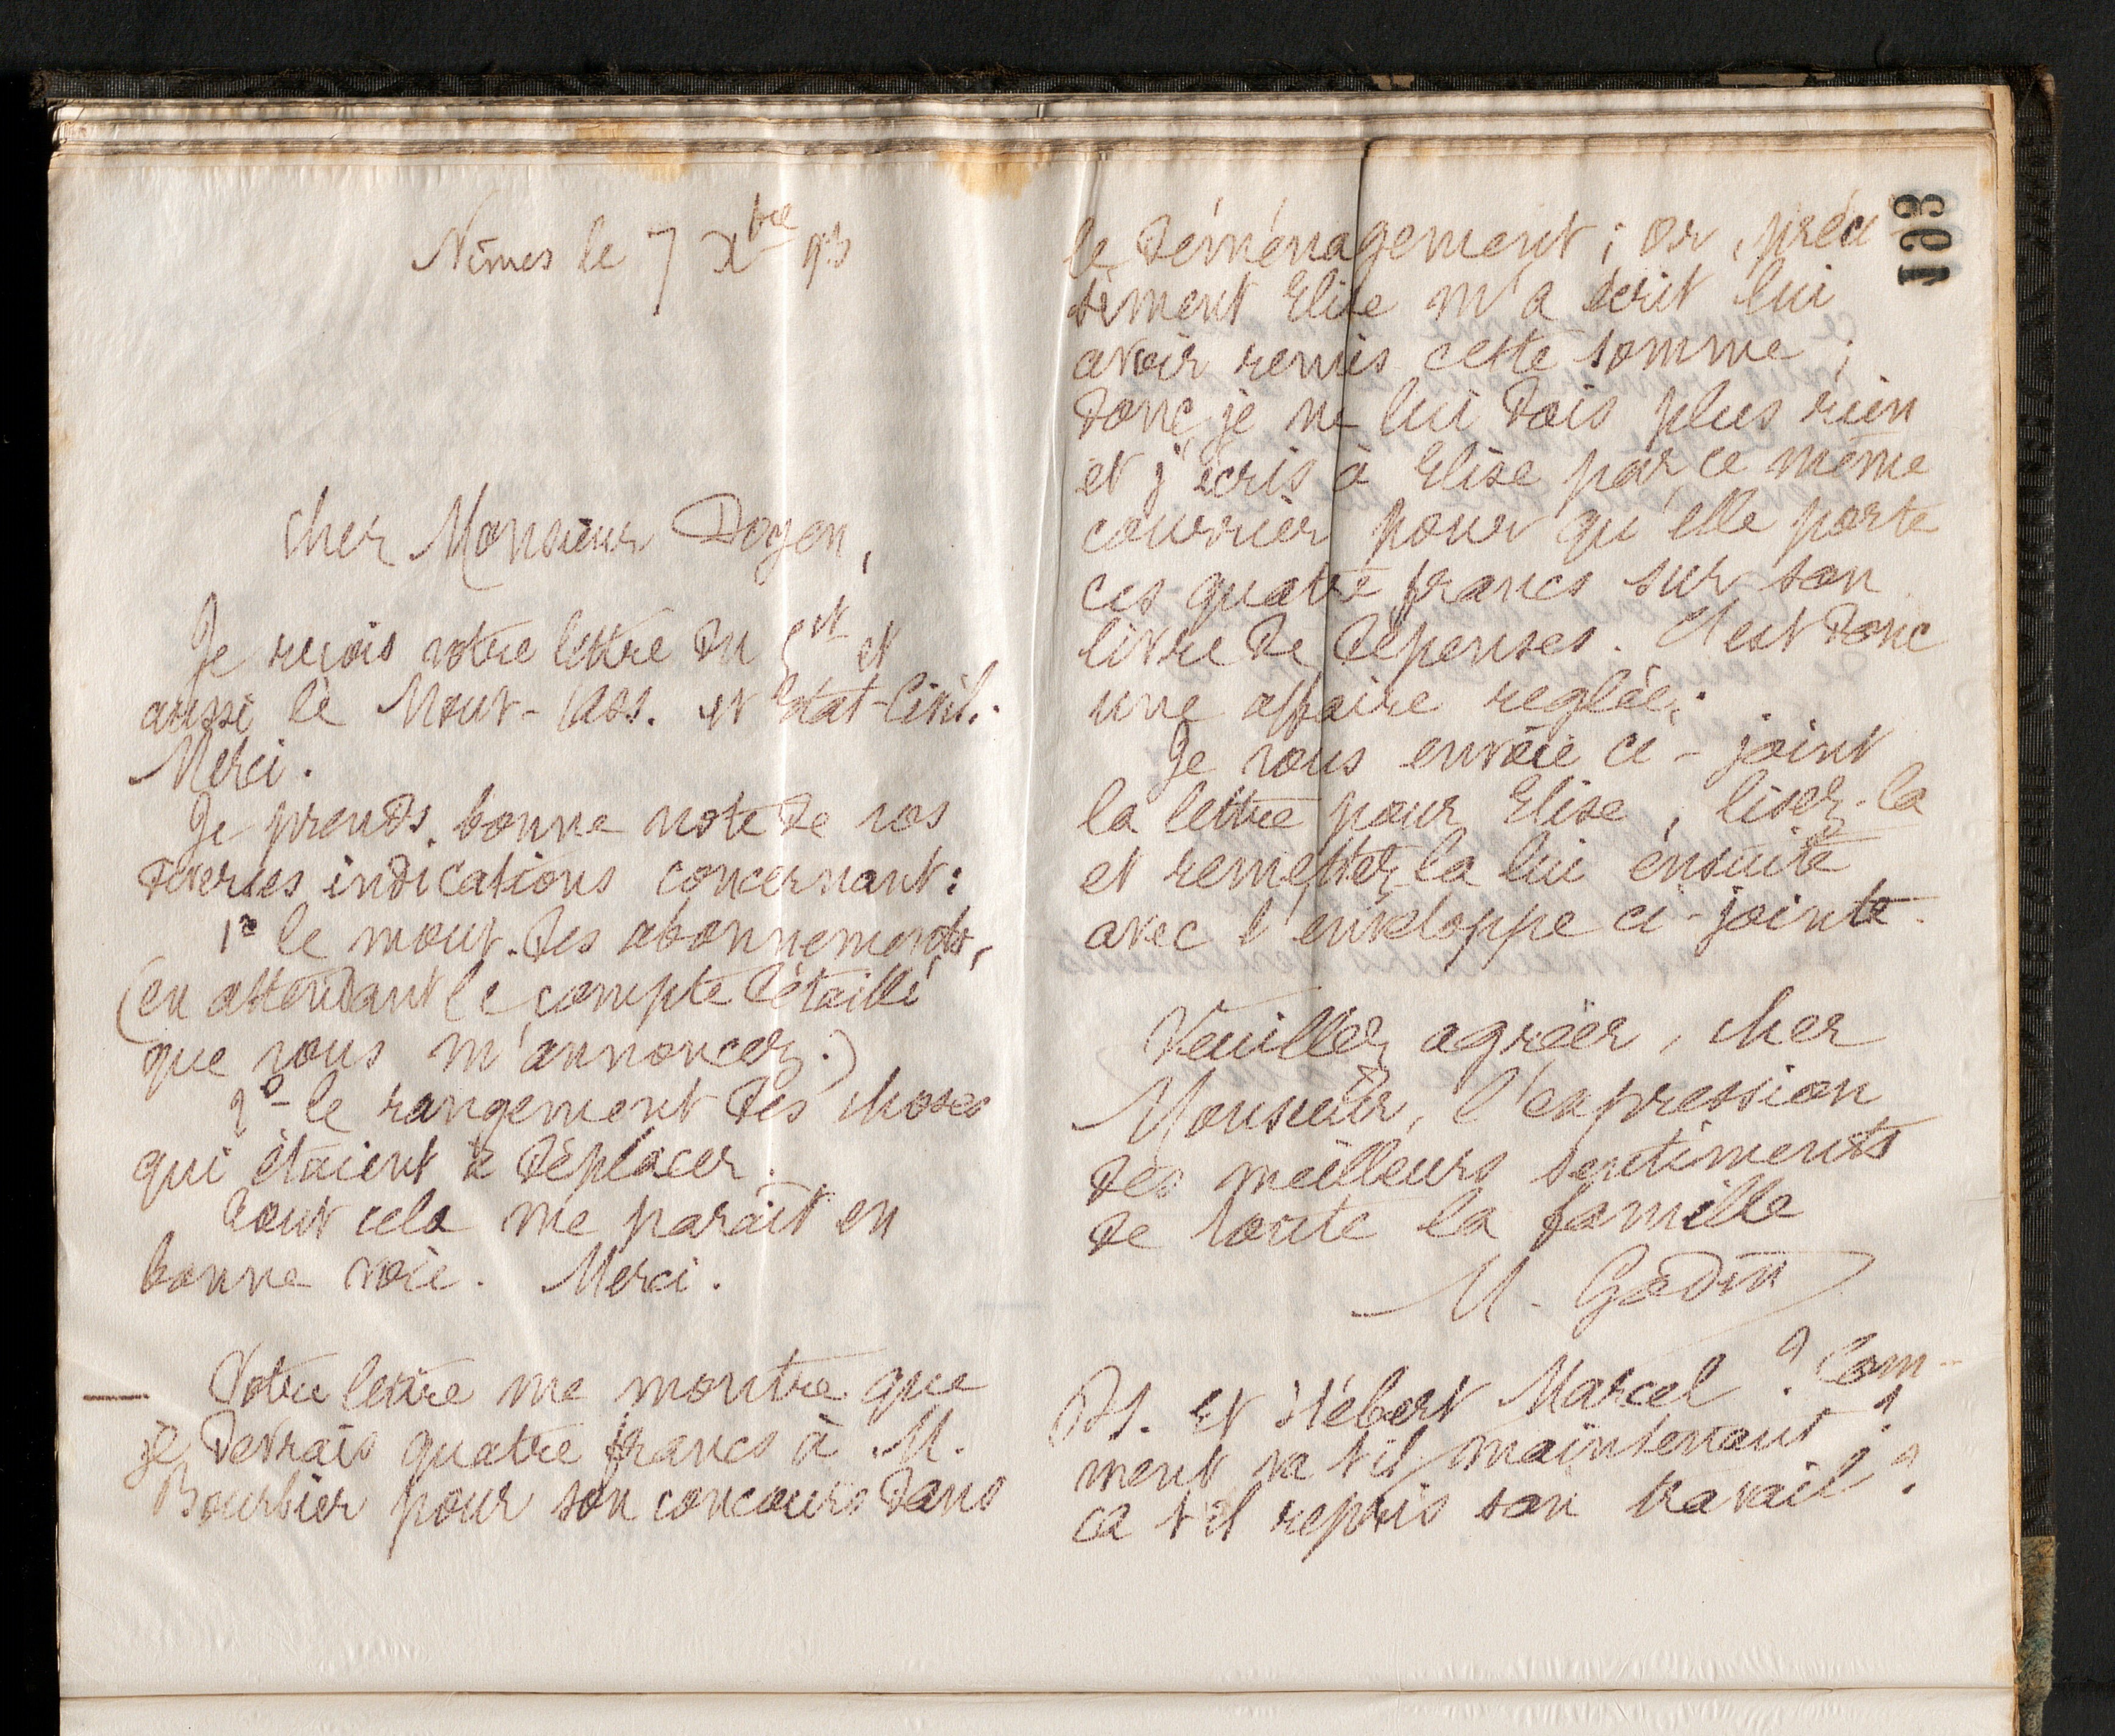 Nîmes le 7 Xbre 93
Cher Monsieur Doyen,
Je reçois votre lettre du 5 ct et
aussi le Mouv- Cass. et Etat-Civil.
Merci.
Je prends bonne note de vos
diverses indications concernant:
1º le mouv. des abonnements,
(en attendant le compte détaillé
que vous m'annoncez.)
2º le rangement des choses
qui étaient à déplacer.
Tout cela me parait en
bonne voie. Merci.
— Votre lettre me montre que
je devrais quatre francs à M.
Bourbier pour son concours dans
193
le déménagement; or, préci
sément Elise m'a écrit lui
avoir remis cette somme;
donc je ne lui dois plus rien
et j'écris à Elise par ce même
courrier pour qu'elle porte
ces quatre francs sur son
livre de dépenses. C'est donc
une affaire reglée.
Je vous envoie ci-joint
la lettre pour Elise, lisez-la
et remettez la lui ensuite
avec l'enveloppe ci-jointe.
Veuillez agréer, cher
Monsieur, l'expression
des meilleurs sentiments
de toute la famille
M. Godin
PS. et Hébert Marcel? Com-
ment va t'il maintenant?
a t'il repris son travail?